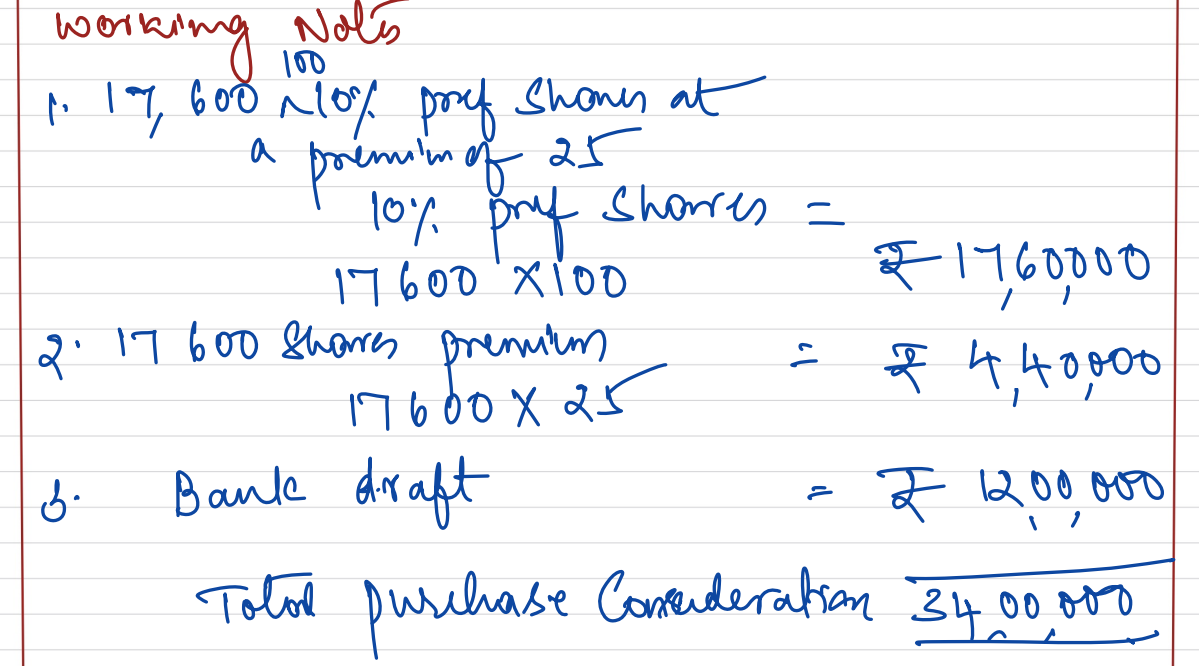 Working Notes
100
1. 17,600 ~10% pref shares at
a premium of 25
10% pref shares =
₹ 17,60,000
17600 X100
2. 17600 Shares premium = ₹ 4,40,000
17600 X 25
3. Bank draft = ₹ 12,00,000
Total purchase Consideration 34,00,000